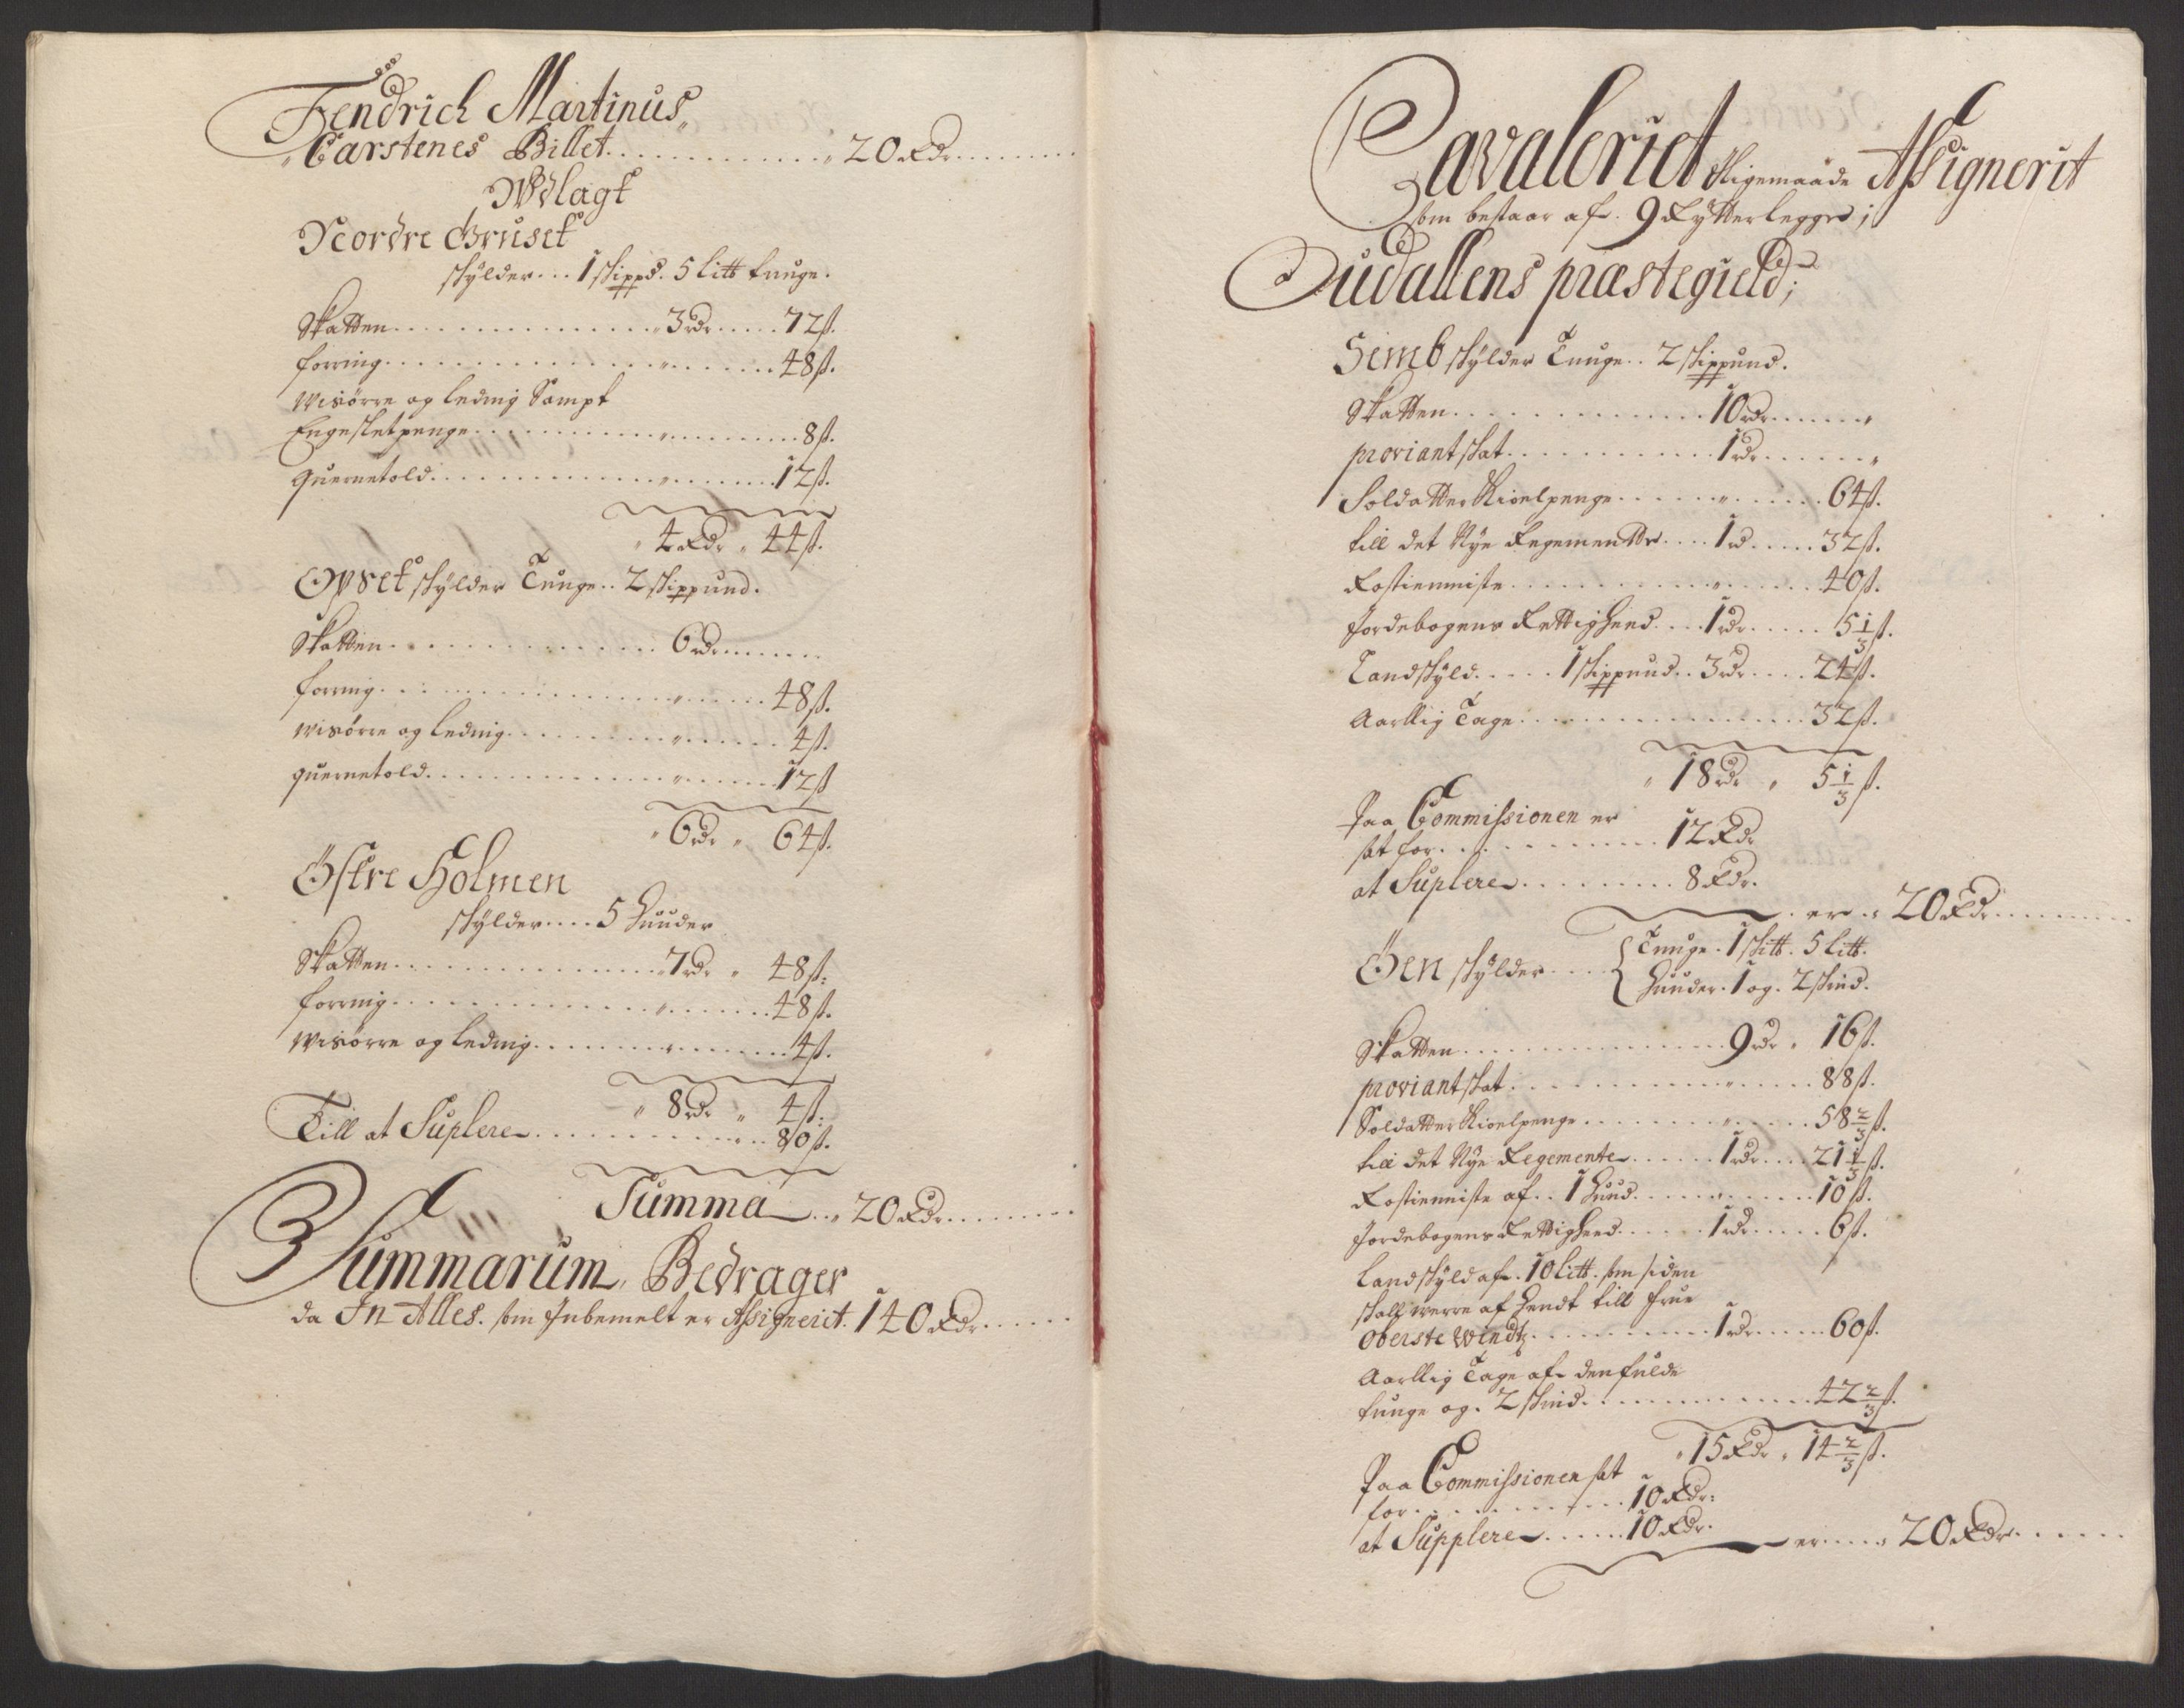 Fendrich Martinus
Carstenes Billet . . . 20 Rdr
Udlagt
Nordre Gruset
skylder . . . 1 skippd. 5 litt tunge.
Skatten . . . 3 rdr . . . 72 ß.
forring . . . 48 ß.
Wisörre og leding Sampt
Engesletpenge . . . 8 ß.
quernetold . . . 12 ß.
4 Rdr 44 ß.
Opset skylder Tunge . . 2 skippund.
Skatten . . . 6 rdr
forring . . . 48 ß.
wisörre og leding . . . 4 ß.
quernetold . . . 12 ß
6 rdr 64 ß.
Östre Holmen
skylder . . . 5 huuder
Skatten . . . 7 rdr 48 ß:
forring . . . 48 ß.
Wisörre og leding . . . 4 ß.
8 rdr 4 ß:
Till at Suplere . . . 80 ß.
Summa . . 20 Rdr
Summarum, Bedrager
da In Alles. som Inbemelt er Assignerit. 140 Rdr
Cavaleriet Ligemaade Assignerit
som bestaar af. 9 Rytterlegger;
Sudallens præstegield;
Semb skylder Tunge . . 2 skippund.
Skatten . . . 10 rdr
proviantskat . . . 1 rdr
Soldatter Kioelpenge . . . 64 ß.
till det Nye Regementte . . . 1 rd . . . 32 ß.
Rostienniste . . . 40 ß.
Jordebogens Rettighed . . . 1 rdr . . . 5 1/3 ß.
Landskyld . . . 1 skippund . . 3 rdr . . . 24 ß.
Aarllig Tage . . . 32 ß.
18 rdr 5 1/3 ß.
Paa Commissionen er
sat for . . . 12 Rdr
at Suplere . . . 8 Rdr.
er . . 20 Rdr
Öen skylder . . . Tunge . 1 skitt. 5 litt.
Huuder . 1 og . 2 skind.
Skatten . . . 9 rdr 16 ß.
proviantskat . . . 88 ß.
Soldatter Kioelpenge . . . 58 2/3 ß.
till det Nye Regemente . . . 1 rdr . . . 21 1/3 ß.
Rostienniste af . . 1 huud . . . 10 ß.
Jordebogens Rettighed . . . 1 rdr . . . 6 ß.
Landskyld af. 10 litt. som siden
skall werre af hendt till frue
Oberste Windtz . . . 1 rdr . . . 60 ß.
Aarllig Tage af den fulde
tunge og . 2 skind . . . 42 2/3 ß.
15 Rdr 14 2/3 ß.
Paa Commissionen sat
for . . . 10 Rdr:
at Supplere . . . 10 Rdr.
er . . . 20 Rdr